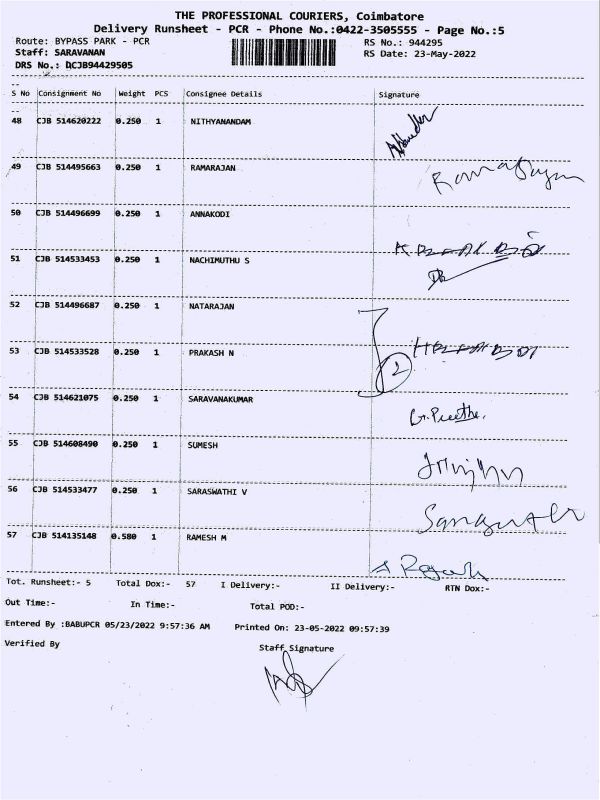 THE PROFESSIONAL COURIERS, Coimbatore
Delivery Runsheet - PCR - Phone No.:0422-3505555 - Page No.:5
Route: BYPASS PARK - PCR RS No.: 944295
Staff: SARAVANAN RS Date: 23-May-2022
DRS No.: DCJB94429505
S No Consignment No Weight PCS Consignee Details Signature
48 CJB 514620222 0.250 1 NITHYANANDAM
49 CJB 514495663 0.250 1 RAMARAJAN Ramarajan
50 CJB 514496699 0.250 1 ANNAKODI
51 CJB 514533453 0.250 1 NACHIMUTHU S
52 CJB 514496687 0.250 1 NATARAJAN
53 CJB 514533528 0.250 1 PRAKASH N 2
54 CJB 514621075 0.250 1 SARAVANAKUMAR G. Preetha.
55 CJB 514608490 0.250 1 SUMESH
56 CJB 514533477 0.250 1 SARASWATHI V
57 CJB 514135148 0.580 1 RAMESH M
Tot. Runsheet:- 5 Total Dox:- 57 I Delivery:- II Delivery:- RTN Dox:-
Out Time:- In Time:- Total POD:-
Entered By :BABUPCR 05/23/2022 9:57:36 AM Printed On: 23-05-2022 09:57:39
Verified By Staff Signature